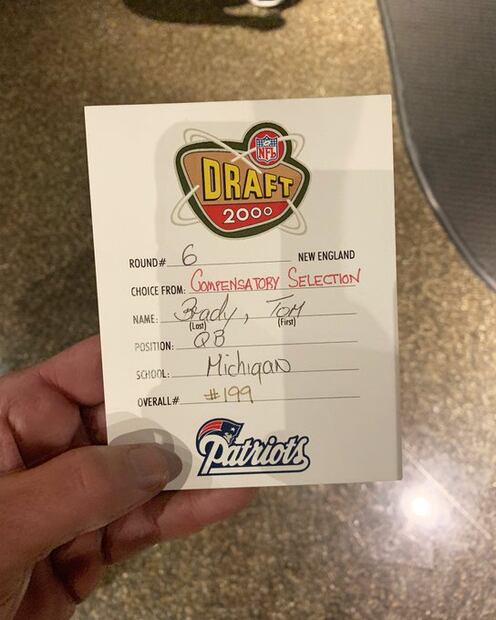 NFL
DRAFT
2000
ROUND# 6 NEW ENGLAND
CHOICE FROM: COMPENSATORY SELECTION
NAME: Brady, TOM
(Last) (First)
POSITION: QB
SCHOOL: Michigan
OVERALL# #199
Patriots